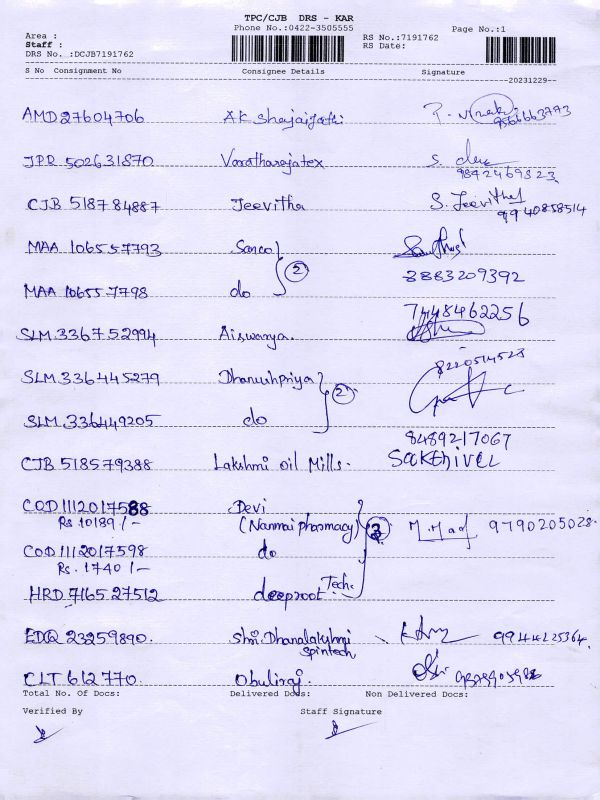 TPC/CJB DRS - KAR
Phone No.:0422-3505555
Area :
Staff :
DRS No. :DCJB7191762
RS No.:7191762
RS Date:
Page No.:1
S No Consignment No Consignee Details Signature
20231229
AMD 27604706 AK Shajaijothi
JPR 502631870 Varatharajatex S.
9842469823
CJB 518784887 Jeevitha S. Jeevitha
9940858514
MAA 106557793 Sanco
(2) 8883209392
MAA 106557798 do
7448462256
SLM.336752994 Aiswarya.
8220514528
SLM.336445279 Dhanushpriya (2)
SLM.336449205 do
8489217067
CJB 518579388 Lakshmi oil Mills. SakthiveL
COD 1112017588 Devi
Rs 10189/- (Nanmai pharmacy) (3) 9790205028.
COD 1112017598 do
Rs. 1740/-
HRD 716527512 deeproot Tech.
EDQ 23259890. Shri.Dhanalakshmi Spintech 9944225364
CLT 612770. Obuliraj.
Total No. Of Docs: Delivered Docs: Non Delivered Docs:
Verified By Staff Signature